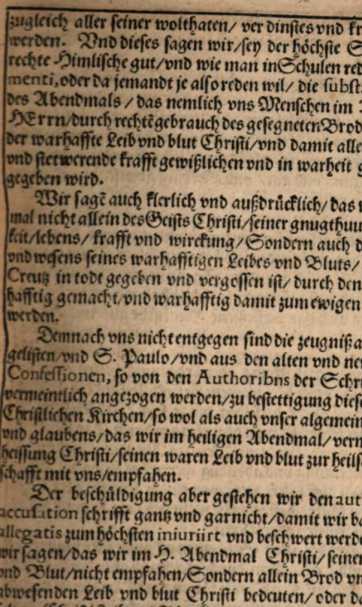 zugleich aller seiner wolthaten/ verdinstes vnd
werden. Vnd dieses sagen wir/sey der höchste
rechte Himlische gut/vnd wie man in Schulen
menti, oder da jemandt je also reden wil/ die
des Abendmals / das nemlich vns Menschen im
HErrn/durch rechtē gebrauch des gesegneten Brod
der warhaffte Leib vnd blut Christi/vnd damit alle
vnd stetwerende krafft gewißlichen vnd in warheit
gegeben wird.
Wir sagē auch klerlich vnd außdrücklich/ das
mal nicht allein des Geists Christi/seiner
keit/lebens/ krafft vnd wirckung/ Sondern auch
vnd wesens seines warhafftigen Leibes vnd Bluts/
Creutz in todt gegeben vnd vergossen ist/ durch den
hafftig gemacht/vnd warhafftig damit zum ewigen
werden.
Demnach vns nicht entgegen sind die
gelisten/vnd S. Paulo/vnd aus den alten vnd
Confessionen, so von den Authoribns der
vermeintlich angezogen werden/zu bestettigung
Christlichen Kirchen/so wol als auch vnser
vnd glaubens/das wir im heiligen Abendmal/
heissung Christi/seinen waren Leib vnd blut zur
schafft mit vns/empfahen.
Der beschüldigung aber gestehen wir den
accusation schrifft gantz vnd gar nicht/damit wir
allegatis zum höchsten iniuriirt vnd beschwert
wir sagen/das wir im H. Abendmal Christi/
vnd Blut/nicht empfahen/Sondern allein Brod
abwesenden Leib vnd blut Christi bedeuten/ oder